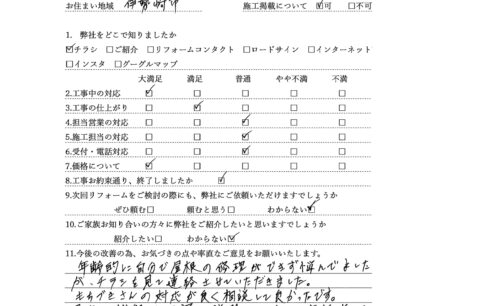 お住まい地域 伊勢崎市 施工掲載について ☑可 □不可
1. 弊社をどこで知りましたか
☑チラシ □ご紹介 □リフォームコンタクト □ロードサイン □インターネット
□インスタ □グーグルマップ
大満足 満足 普通 やや不満 不満
2.工事中の対応 ☑ □ □ □ □
3.工事の仕上がり □ ☑ □ □ □
4.担当営業の対応 □ □ ☑ □ □
5.施工担当の対応 □ □ ☑ □ □
6.受付・電話対応 □ □ ☑ □ □
7.価格について ☑ □ □ □ □
8.工事お約束通り、終了しましたか ☑
9.次回リフォームをご検討の際にも、弊社にご依頼いただけますでしょうか
ぜひ頼む□ 頼むと思う□ わからない☑
10.ご家族お知り合いの方々に弊社をご紹介したいと思いますでしょうか
紹介したい□ わからない☑
11.今後の改善の為、お気づきの点や率直なご意見をお願いいたします。
年齢的に自分で屋根の修理ができず悩んでました
が、チラシを見て連絡させていただきました。
の対応が良く相談して良かったです。